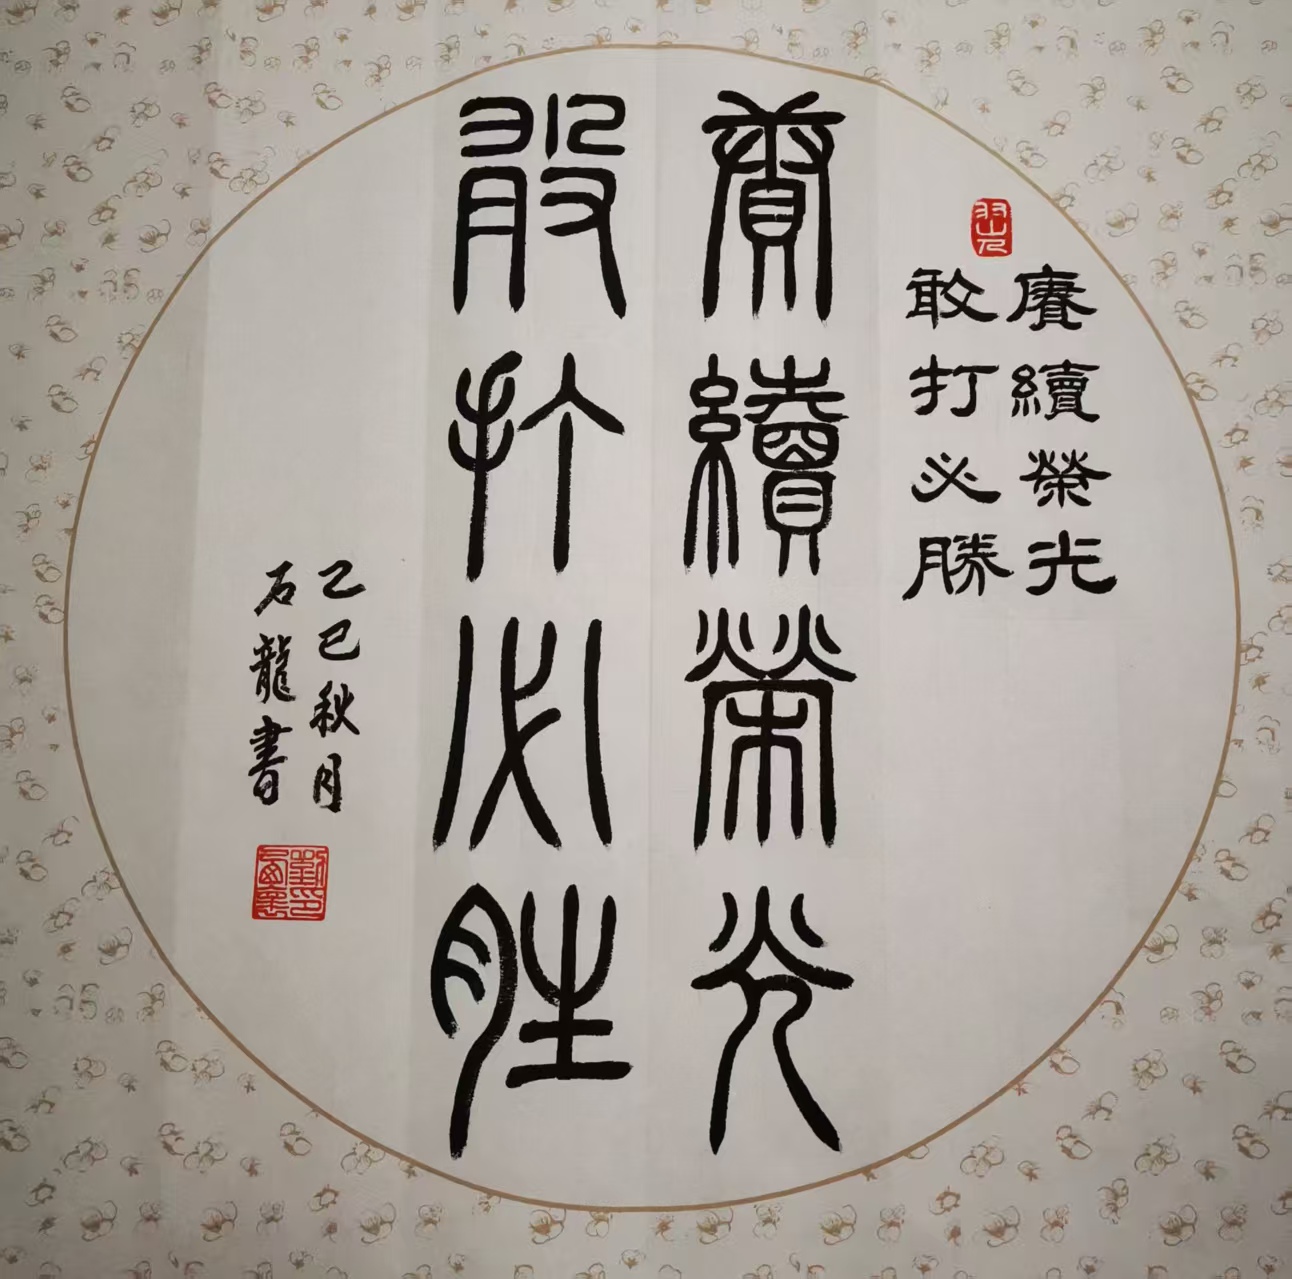 賡續榮光
敢打必勝
賡續榮光
敢打必胜
乙巳秋月
石龍書